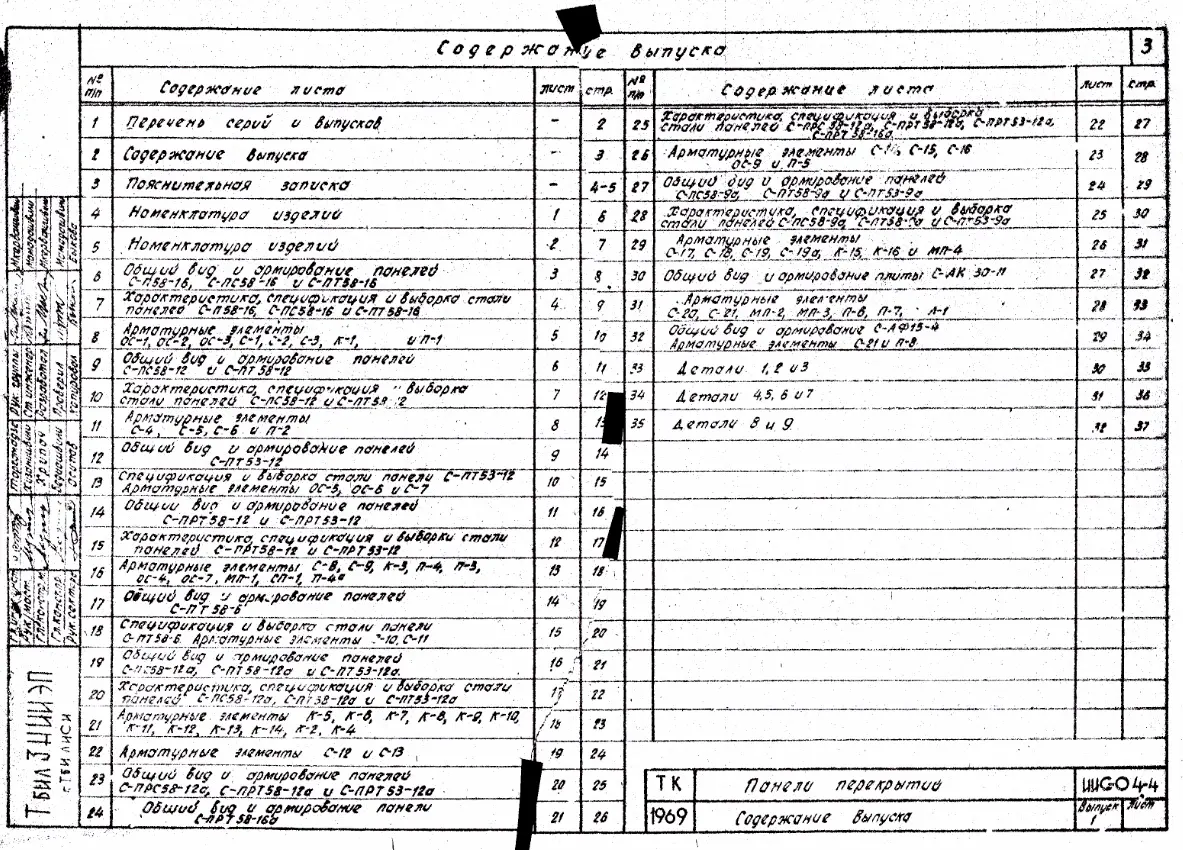 Содержание выпуска
3
№ п/п Содержание листа лист стр.
1 Перечень серий и выпусков – 2
2 Содержание выпуска – 3
3 Пояснительная записка – 4-5
4 Номенклатура изделий 1 6
5 Номенклатура изделий 2 7
6 Общий вид и армирование панелей 3 8
С-П58-16, С-ПС58-16 и С-ПТ58-16
7 Характеристика, спецификация и выборка стали 4 9
панелей С-П58-16, С-ПС58-16 и С-ПТ58-16
8 Арматурные элементы 5 10
ОС-1, ОС-2, ОС-3, С-1, С-2, С-3, К-1, и П-1
9 Общий вид и армирование панелей 6 11
С-ПС58-12 и С-ПТ58-12
10 Характеристика, спецификация и выборка 7 12
стали панелей С-ПС58-12 и С-ПТ58-12
11 Арматурные элементы 8 13
С-4, С-5, С-6 и П-2
12 Общий вид и армирование панелей 9 14
С-ПТ53-12
13 Спецификация и выборка стали панели С-ПТ53-12 10 15
Арматурные элементы ОС-5, ОС-6 и С-7
14 Общий вид и армирование панелей 11 16
С-ПРТ58-12 и С-ПРТ53-12
15 Характеристика, спецификация и выборки стали 12 17
панелей С-ПРТ58-12 и С-ПРТ53-12
16 Арматурные элементы С-8, С-9, К-3, П-4, П-3, 13 18
ОС-4, ОС-7, МП-1, СП-1, П-4а
17 Общий вид и армирование панелей 14 19
С-ПТ58-6
18 Спецификация и выборка стали панели 15 20
С-ПТ58-6 Арматурные элементы С-10, С-11
19 Общий вид и армирование панелей 16 21
С-ПС58-12а, С-ПТ58-12а и С-ПТ53-12а
20 Характеристика, спецификация и выборка стали 17 22
панелей С-ПС58-12а, С-ПТ58-12а и С-ПТ53-12а
21 Арматурные элементы К-5, К-6, К-7, К-8, К-9, К-10, 18 23
К-11, К-12, К-13, К-14, К-2, К-4
22 Арматурные элементы С-12 и С-13 19 24
23 Общий вид и армирование панелей 20 25
С-ПРС58-12а, С-ПРТ58-12а и С-ПРТ53-12а
24 Общий вид и армирование панели 21 26
С-ПРТ58-16а
№ п/п Содержание листа лист стр.
25 Характеристика, спецификация и выборка 22 27
стали панелей С-ПРС58-12а, С-ПРТ58-12а, С-ПРТ53-12а,
С-ПРТ58-16а
26 Арматурные элементы С-15, С-16 23 28
ОС-9 и П-5
27 Общий вид и армирование панелей 24 29
С-ПС58-9а, С-ПТ58-9а и С-ПТ53-9а
28 Характеристика, спецификация и выборка 25 30
стали панелей С-ПС58-9а, С-ПТ58-9а и С-ПТ53-9а
29 Арматурные элементы 26 31
С-17, С-18, С-19, С-19а, К-15, К-16 и МП-4
30 Общий вид и армирование плиты С-АК 30-11 27 32
31 Арматурные элементы 28 33
С-20, С-21, МП-2, МП-3, П-6, П-7, А-1
32 Общий вид и армирование С-АФ15-4 29 34
Арматурные элементы С-21 и П-8
33 Детали 1, 2 и 3 30 35
34 Детали 4, 5, 6 и 7 31 36
35 Детали 8 и 9 32 37
ТК Панели перекрытий ИИС-04-4
1969 Содержание выпуска Выпуск 1 Лист
ТбилЗНИИЭП
г. Тбилиси
Рук. группы
Ст. инженер
Разработал
Проверил
Копировал